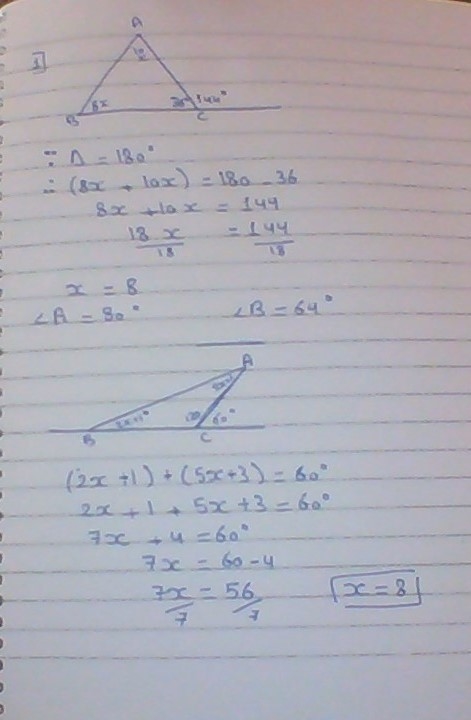 A
1]
10x
8x
36° 144°
B
C
∵ Δ = 180°
∴ (8x + 10x) = 180 - 36
8x + 10x = 144
18 x = 144
18 18
x = 8
∠A = 80° ∠B = 64°
A
2x+1°
60°
B
C
(2x + 1) + (5x + 3) = 60°
2x + 1 + 5x + 3 = 60°
7x + 4 = 60°
7x = 60 - 4
7x = 56 x = 8
7 7